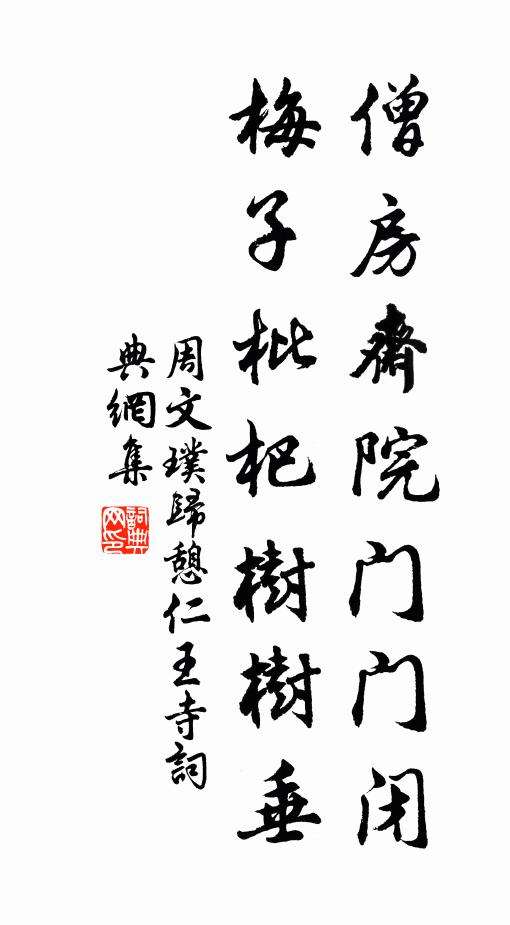 僧房斋院门门闭
梅子枇杷樹樹垂
周文璞歸憩仁王寺詞
典網集
詞典
网印